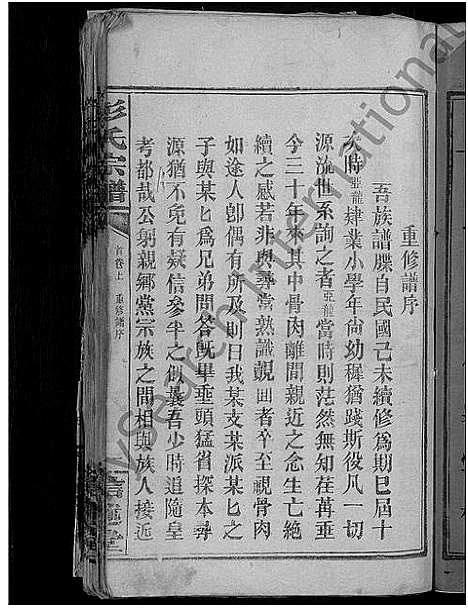 重修譜序
吾族譜牒自民國己未續修爲期已屆十
次時亞龍肄業小學年尙幼穉猶踐斯役凡一切
源流世系詢之者亞龍當時則茫然無知荏苒垂
今三十年來其中骨肉離間親近之念生亡絶
續之感若非與尋常熟識覿面者卒至視骨肉
如途人卽偶有所及則曰我某支某派某匕之
子與某匕爲兄弟問答旣畢垂頭猛省探本尋
源猶不免有疑信參半之似曩吾少時追隨皇
考都哉公躬親鄉黨宗族之間相與族人接近
彭氏宗譜
首卷上 重修譜序
信述堂
MySearch International